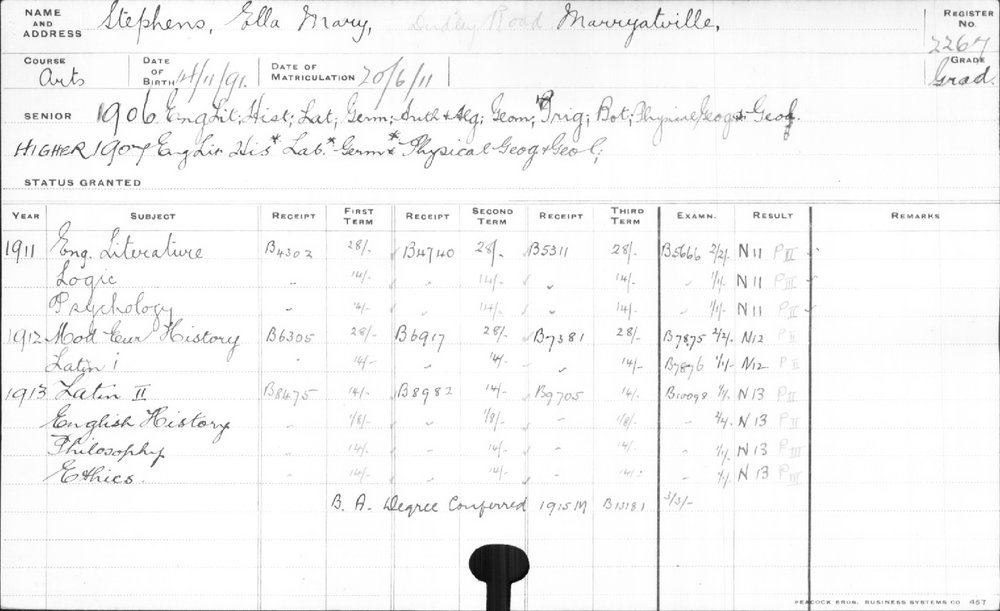 NAME AND ADDRESS Stephens, Ella Mary, Dudley Road Marryatville, REGISTER No. 2267
COURSE Arts DATE OF BIRTH /11/91. DATE OF MATRICULATION 20/6/11 GRADE Grad.
SENIOR 1906 Eng Lit; Hist; Lat; Germ; Arith & Alg; Geom; Trig; Bot; Geog & Geol.
HIGHER 1907 Eng Lit His* Lat* Germ* Physical Geog & Geol;
STATUS GRANTED
YEAR SUBJECT RECEIPT FIRST TERM RECEIPT SECOND TERM RECEIPT THIRD TERM EXAMN. RESULT REMARKS
1911 Eng. Literature B4302 28/- B4740 28/- B5311 28/- B5666 2/2/- N11 P II
Logic " 14/- " 14/- " 14/- " 1/1/- N11 P III
Psychology " 14/- " 14/- " 14/- " 1/1/- N11 P III
1912 Mod Eur History B6305 28/- B6917 28/- B7381 28/- B7875 2/2/- N12 P II
Latin i " 14/- " 14/- " 14/- B7876 1/1/- N12 P II
1913 Latin II B8475 14/- B8982 14/- B9705 14/- B10098 1/1/- N13 P III
English History " 1/8/- " 1/8/- " 1/8/- N13 P II
Philosophy " 14/- " 14/- " 14/- " 1/1/- N13 P III
Ethics. " 14/- " 14/- " 14/- " 1/1/- N13 P III
B. A. Degree Conferred 1915M B13181 3/3/-
PEACOCK BROS. BUSINESS SYSTEMS CO 457